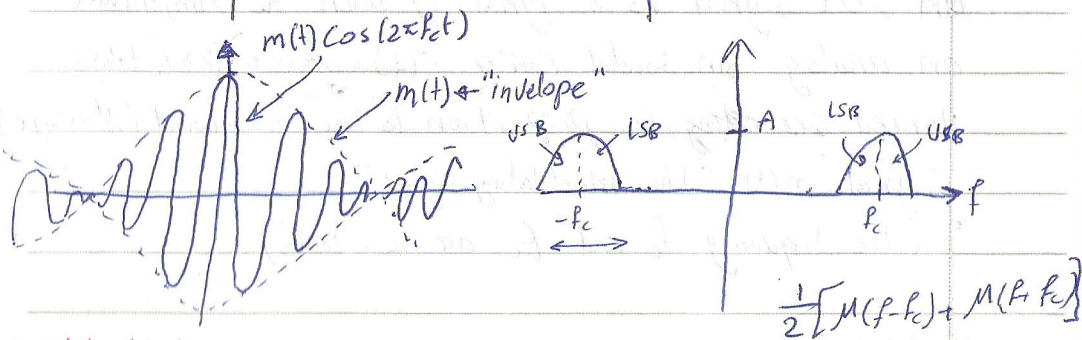 m(t) cos(2πf_c t)
m(t) ← "invelope"
USB LSB
A
LSB USB
-f_c
f_c
f
1/2 [M(f-f_c) + M(f+f_c)]